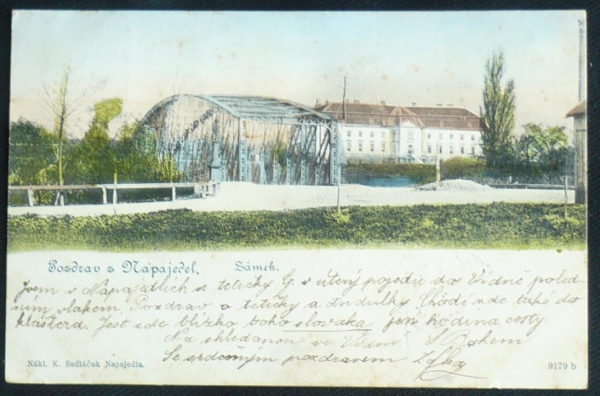 Pozdrav z Napajedel. Zámek.
Jsem v Napajedlích u tetičky G. v úterý pojedu do Vídně poled-
ním vlakem. Pozdrav o tetičky a Andulky. Chodí zde také do
kláštera. Jest zde blízko toho slovaka, jen hodina cesty
Na shledanou ve Vídni S Bohem
Se srdečným pozdravem
Nákl. K. Sedláček Napajedla. 9179 b